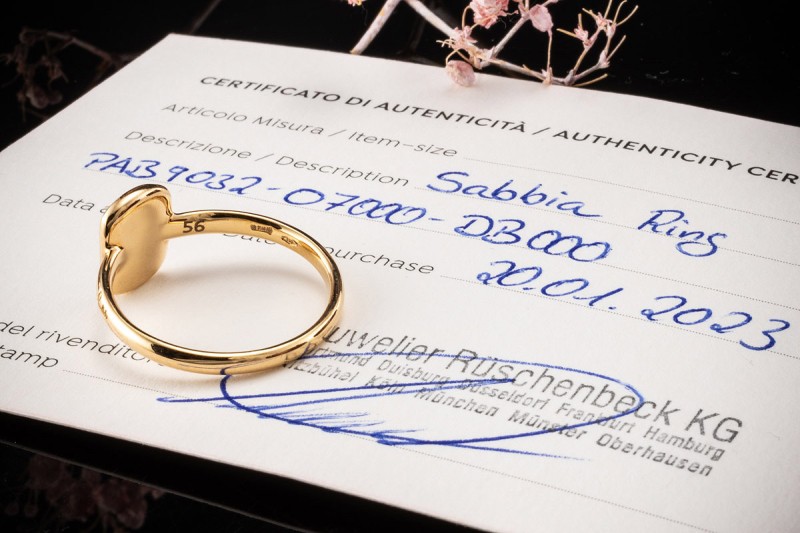 CERTIFICATO DI AUTENTICITÀ / AUTHENTICITY CER
Articolo Misura / Item-size
Descrizione / Description Sabbia Ring
PAB9032-07000-DB000
Data
purchase 20.01.2023
56
del rivenditore
Juwelier Rüschenbeck KG
Dortmund Duisburg Düsseldorf Frankfurt Hamburg
Kitzbühel Köln München Münster Oberhausen